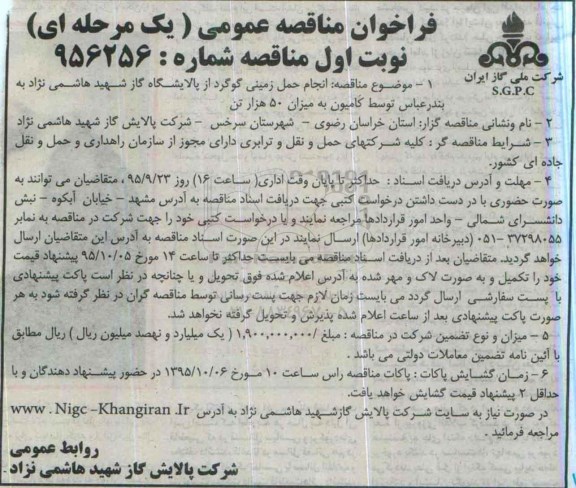 فراخوان مناقصه عمومی ( یک مرحله ای)
نوبت اول مناقصه شماره : ۹۵۶۲۵۶
شرکت ملی گاز ایران
S.G.P.C
۱ – موضوع مناقصه: انجام حمل زمینی گوگرد از پالایشگاه گاز شهید هاشمی نژاد به
بندرعباس توسط کامیون به میزان ۵۰ هزار تن
۲ – نام ونشانی مناقصه گزار: استان خراسان رضوی – شهرستان سرخس – شرکت پالایش گاز شهید هاشمی نژاد
۳ – شرایط مناقصه گر : کلیه شرکتهای حمل و نقل و ترابری دارای مجوز از سازمان راهداری و حمل و نقل
جاده ای کشور.
۴ – مهلت و آدرس دریافت اسناد : حداکثر تا پایان وقت اداری( ساعت ۱۶) روز ۹۵/۹/۲۳ ، متقاضیان می توانند به
صورت حضوری با در دست داشتن درخواست کتبی جهت دریافت اسناد مناقصه به آدرس مشهد – خیابان آبکوه – نبش
دانشسرای شمالی – واحد امور قراردادها مراجعه نمایند و یا درخواست کتبی خود را جهت شرکت در مناقصه به نمابر
۳۷۲۹۸۰۵۵ –۰۵۱ (دبیرخانه امور قراردادها) ارسال نمایند در این صورت اسناد مناقصه به آدرس این متقاضیان ارسال
خواهد گردید. متقاضیان بعد از دریافت اسناد مناقصه می بایست حداکثر تا ساعت ۱۴ مورخ ۹۵/۱۰/۰۵ پیشنهاد قیمت
خود را تکمیل و به صورت لاک و مهر شده به آدرس اعلام شده فوق تحویل و یا چنانچه در نظر است پاکت پیشنهادی
با پست سفارشی ارسال گردد می بایست زمان لازم جهت پست رسانی توسط مناقصه گران در نظر گرفته شود به هر
صورت پاکت پیشنهادی بعد از ساعت اعلام شده پذیرش و تحویل گرفته نخواهد شد.
۵ – میزان و نوع تضمین شرکت در مناقصه : مبلغ /۱,۹۰۰,۰۰۰,۰۰۰ ( یک میلیارد و نهصد میلیون ریال ) ریال مطابق
با آئین نامه تضمین معاملات دولتی می باشد .
۶ – زمان گشایش پاکات : پاکات مناقصه راس ساعت ۱۰ مورخ ۱۳۹۵/۱۰/۰۶ در حضور پیشنهاد دهندگان و با
حداقل ۲ پیشنهاد قیمت گشایش خواهد یافت.
در صورت نیاز به سایت شرکت پالایش گازشهید هاشمی نژاد به آدرس www . Nigc –Khangiran .Ir
مراجعه فرمائید .
روابط عمومی
شرکت پالایش گاز شهید هاشمی نژاد